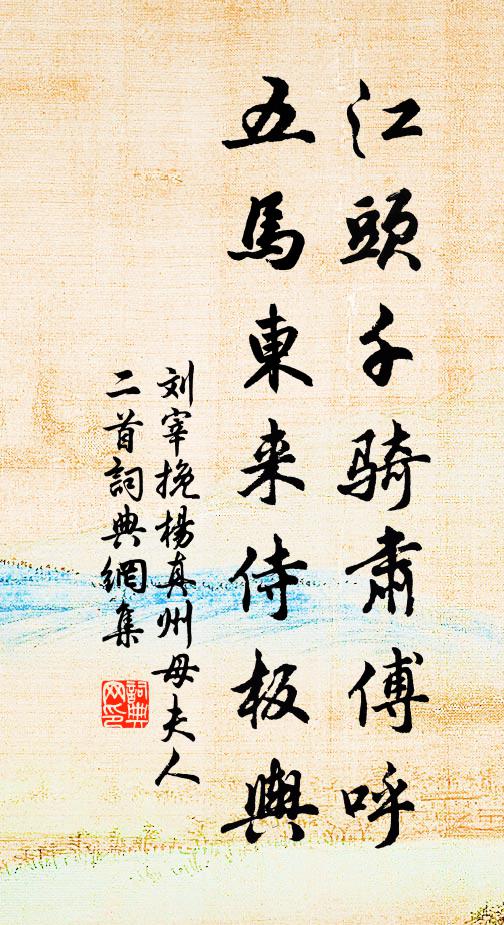 江頭千騎肅傅呼
五馬東来侍板輿
刘宰挽楊真州母夫人
二首詞典網集
詞典
网印